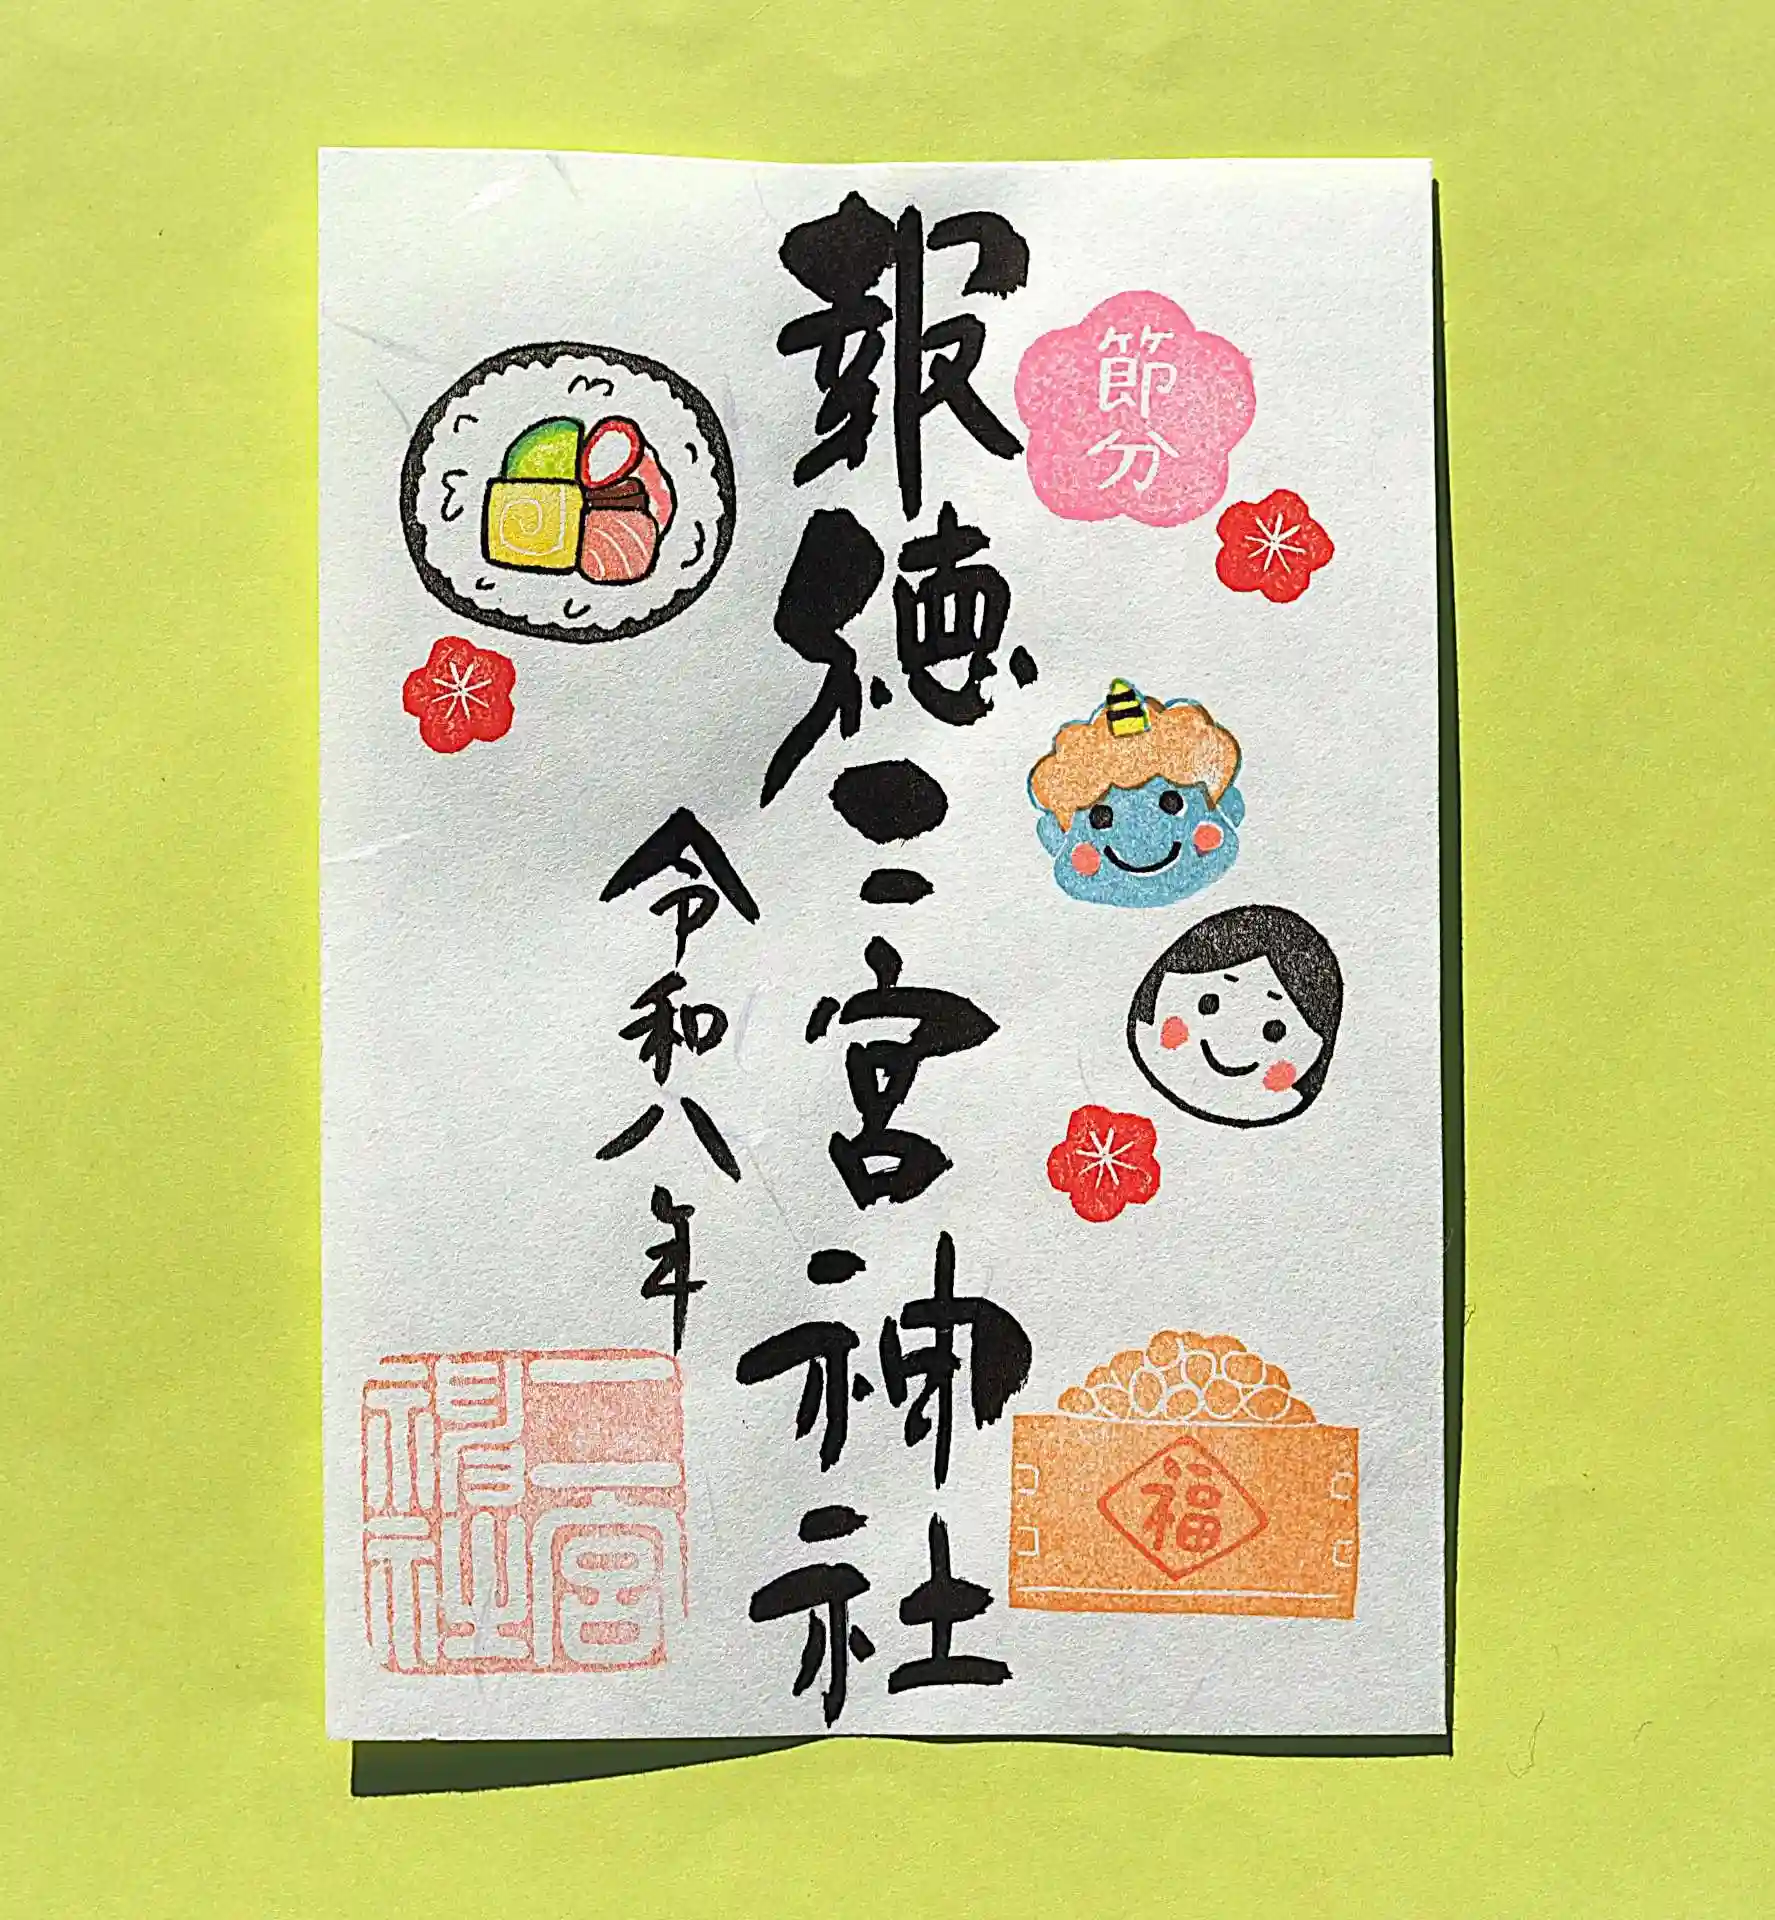 節分
福
報徳二宮神社
令和八年
二宮
神社